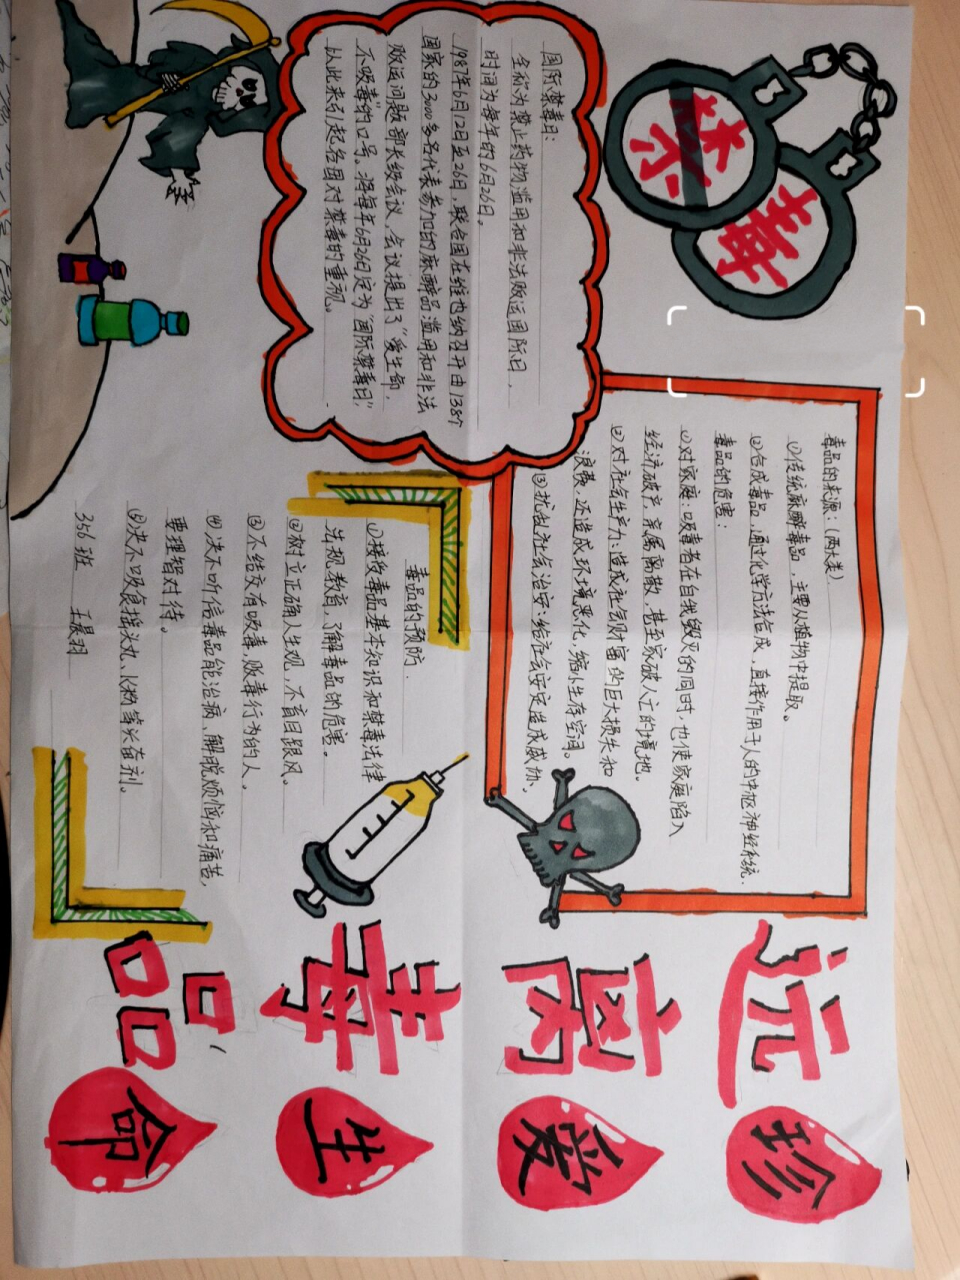 禁毒
国际禁毒日：
全称为禁止药物滥用和非法贩运国际日，
时间为每年的6月26日。
1987年6月12日至26日，联合国在维也纳召开由138个
国家的3000多名代表参加的麻醉品滥用和非法
贩运问题部长级会议，会议提出了“爱生命，
不吸毒”的口号。将每年6月26日定为“国际禁毒日”，
以此来引起各国对禁毒的重视。
毒品的来源：（两大类）
①传统麻醉毒品，主要从植物中提取。
②合成毒品，通过化学方法合成，直接作用于人的中枢神经系统.
毒品的危害：
①对家庭：吸毒者在自我毁灭的同时，也使家庭陷入
经济破产，亲属离散，甚至家破人亡的境地.
②对社会生产力：造成社会财富的巨大损失和
浪费，还造成环境恶化，缩小生存空间。
③扰乱社会治安：给社会安定造成威胁.
毒品的预防.
①接受毒品基本知识和禁毒法律
法规教育，了解毒品的危害。
②树立正确人生观，不盲目跟风。
③不结交有吸毒，贩毒行为的人。
④决不听信毒品能治病、解脱烦恼和痛苦，
要理智对待。
⑤决不吸食摇头丸、K粉等兴奋剂。
356班 王晨羽
远离毒品，
珍爱生命